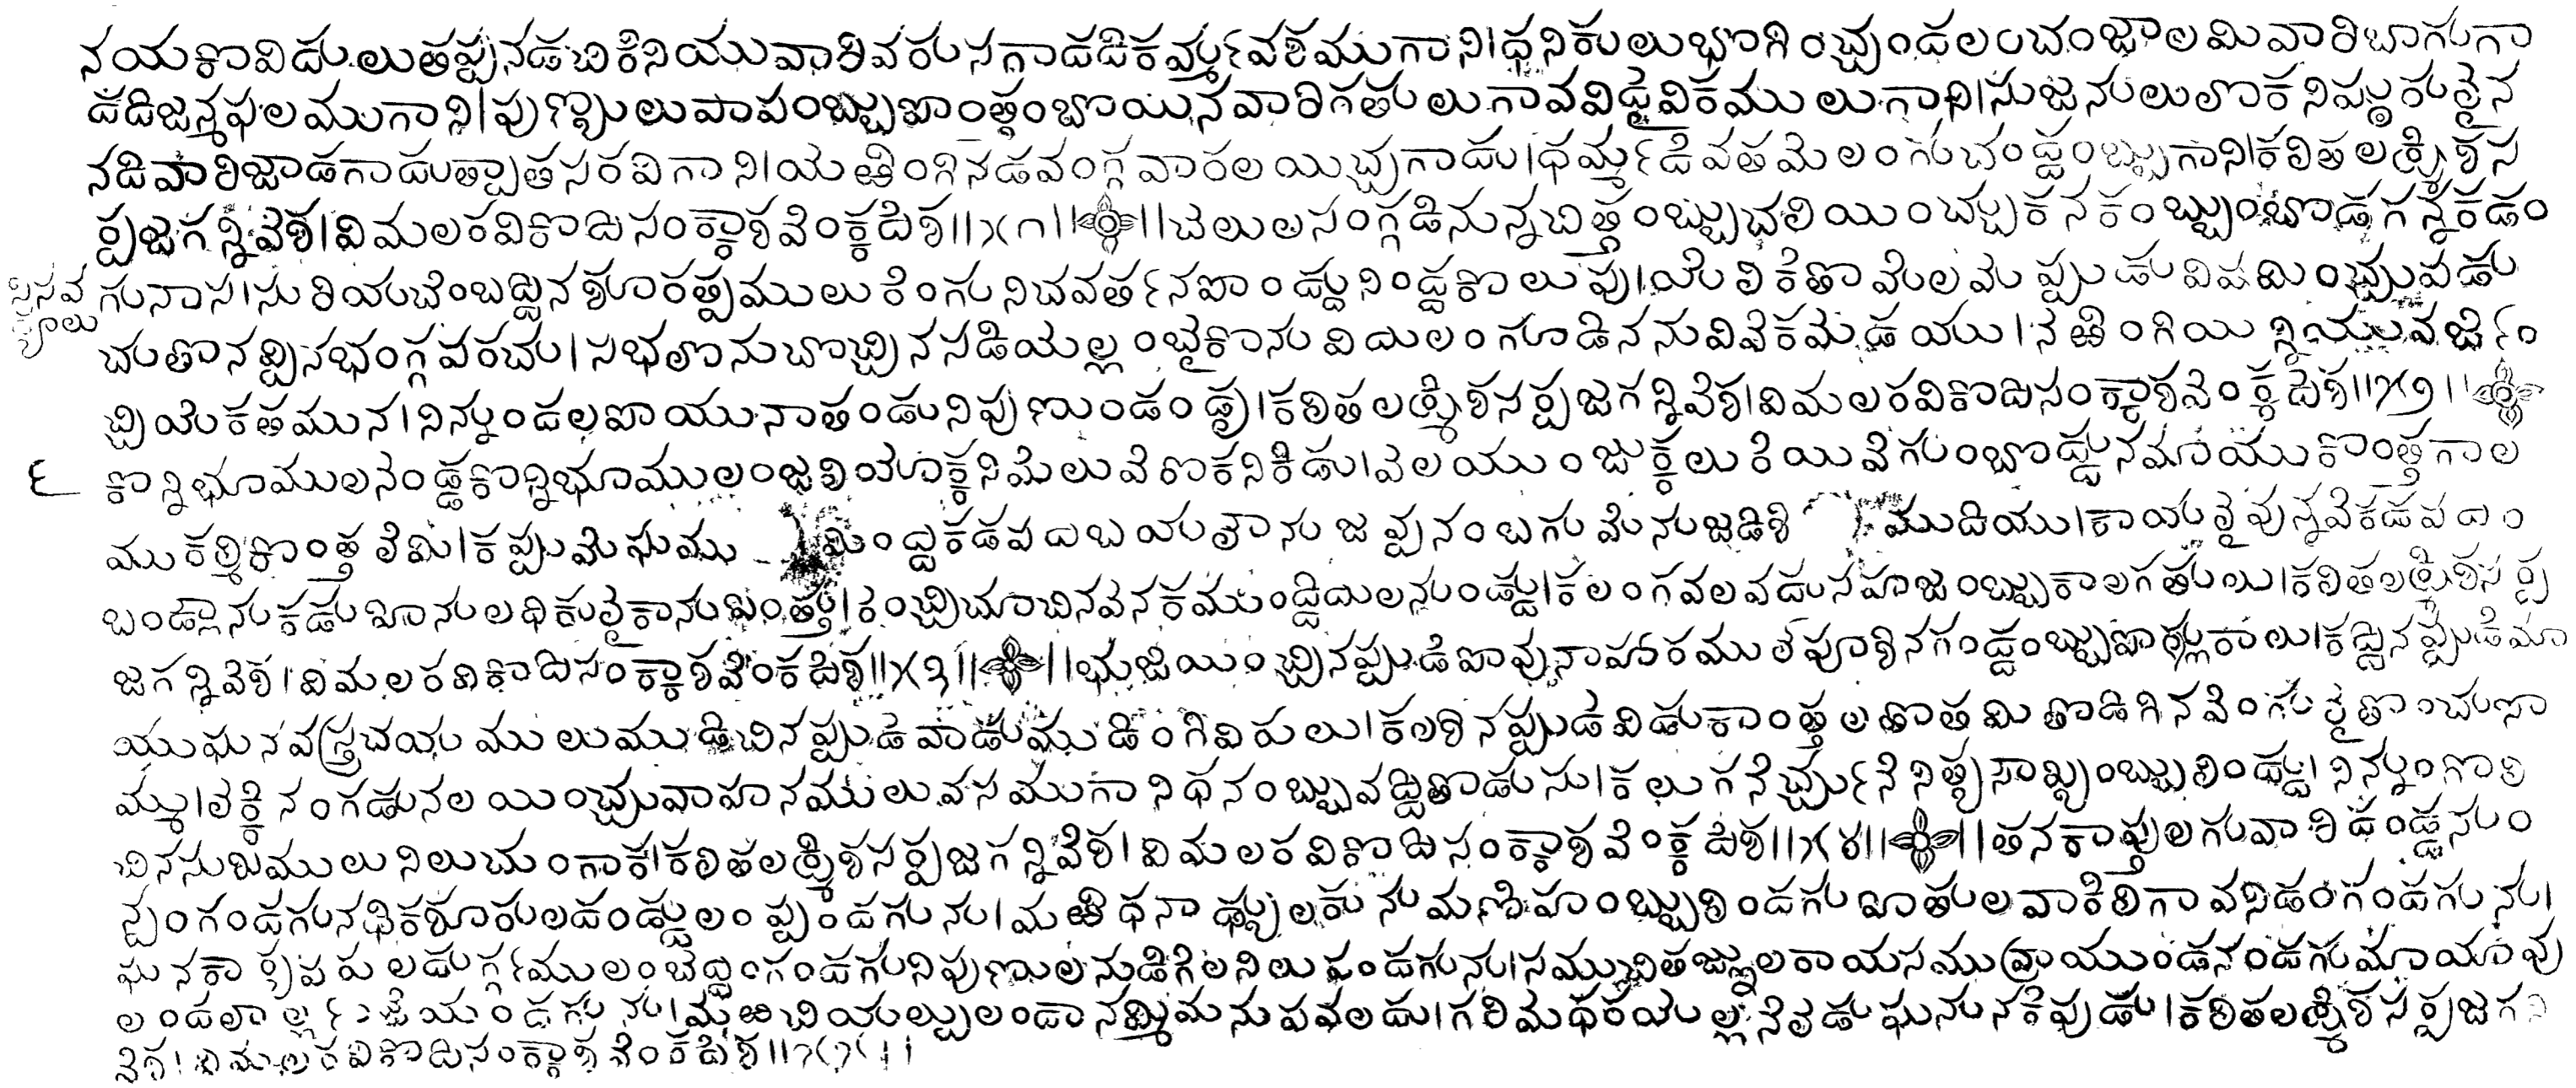 నయకొవిదులుతప్పునడచికినియువారివరుసగాదడికర్మవశముగాని।ధనికులుభొగించ్చుండలంచంజాలమివారిబాగుగా
దడిజన్మఫలముగాని।పుణ్యులుపాపంబ్బుణొంత్తంబొయినవారిగతులుగావవిదైవికములుగాని।సుజనులులొకనిష్ఠురులైన
నడివారిజాడగాదుత్పాతసరవిగాని।యెఱింగినడవంగ్గవారలయిచ్చగాదు।ధర్మదేవతమెలంగుచంద్దంబ్బుగాని।కలితలక్ష్మీశస
ర్ప్పజగన్నివేశ।విమలరవికొటిసంక్కాశవెంక్కటేశ॥౫౧॥ ॥చెలులసంగ్గడినున్నచిత్తంబ్బుచలియించ్చుకనకంబ్బుంబొడగన్నకడం
గునాస।సురియచేంబట్టినశూరత్వములుకెంగునిచవర్తనపాండ్డునిండ్డకొలుపు।యేలికెతొమేలమెప్పుడువిషమించ్చుపడు
చుతొనవ్విసభంగ్గపరచు।సభలొనుచొచ్చినసడియెల్లంబైకొనువిదులంగూడిననువివేకమెడయు।నెఱింగియిన్నియువర్జిం
చ్చియేకతమున।నిన్నుందలపొయునాతండునిపుణుండండ్రు।కలితలక్ష్మీశసర్ప్పజగన్నివేశ।విమలరవికొటిసంక్కాశవెంక్కటేశ॥౫౨॥
కొన్నిభూములనెండ్డకొన్నిభూములంజలియొక్కనిమేలువెరొకనికిడు।వెలయుంజుక్కలురెయివెగుంబొద్దునమాయుకొంత్తగాల
ముకల్మికొంత్తలేమి।కప్పుమేనుము మింద్దకడపటబయలౌనుజవ్వనంబగుమేనుజడిశి ముదియు।కాయలైవున్నవెకడపటం
బండ్లౌనుకడుహీనులధికులైకానుఖంత్తు।రంచ్చిచూచినవెనకముండ్డిదులనుండ్డు।కలంగవలవదుసహజంబ్బుకాలగతులు।కలితలక్ష్మీశసర్ప్ప
జగన్నివేశ।విమలరవికొటిసంక్కాశవెంకటేశ॥౫౩॥ ॥భుజియించ్చినప్పుడేపొవునాహారములేపూశినగంద్దంబ్బుణొళ్లురాలు।కట్టినప్పుడేమా
యుఘనవస్త్రచయములుముడిచినప్పుడేవాడుముడింగివిరులు।కలశినప్పుడేవిడుకాంత్తలతొతమితొడిగినవెంగులైతొంచుసొ
మ్ము।లెక్కినంగడునలయించ్చువాహనములువసముగానిధనంబ్బువడ్డితొడుసు।కలుగనేర్చునెనిత్యసౌఖ్యంబ్బులింద్దు।నిన్నుంగొలి
చినసుఖములునిలుచుంగాక।కలితలక్ష్మీశసర్ప్పజగన్నివేశ।విమలరవికొటిసంక్కాశవెంక్కటేశ॥౫౪॥ ॥తనకాప్తులగువారిదండ్డనుం
న్పంగందగునధికశూరులదండ్డులంప్పందగును।మఱిధనాఢ్యులరునుమణిహంబ్బులిందగుఖాతులవాకిలిగావనిడంగందగును।
ఘనకార్యపరులదుర్గములంబెట్టంగందగునిపుణులనుడిగెలనిలుపందగును।సమ్ముచితజ్ఞులరాయసమువ్రాయుండనందగుమాయావు
లందలార్లంజేయందగును।మఱచియుల్పులందానమ్మిమనుపవలదు।గరిమధరయెల్లనేలెడుఘనునకెపుడు।కలితలక్ష్మీశసర్ప్పజగ
న్నివేశ।విమలరవికొటిసంక్కాశవెంకటేశ॥౫౫॥